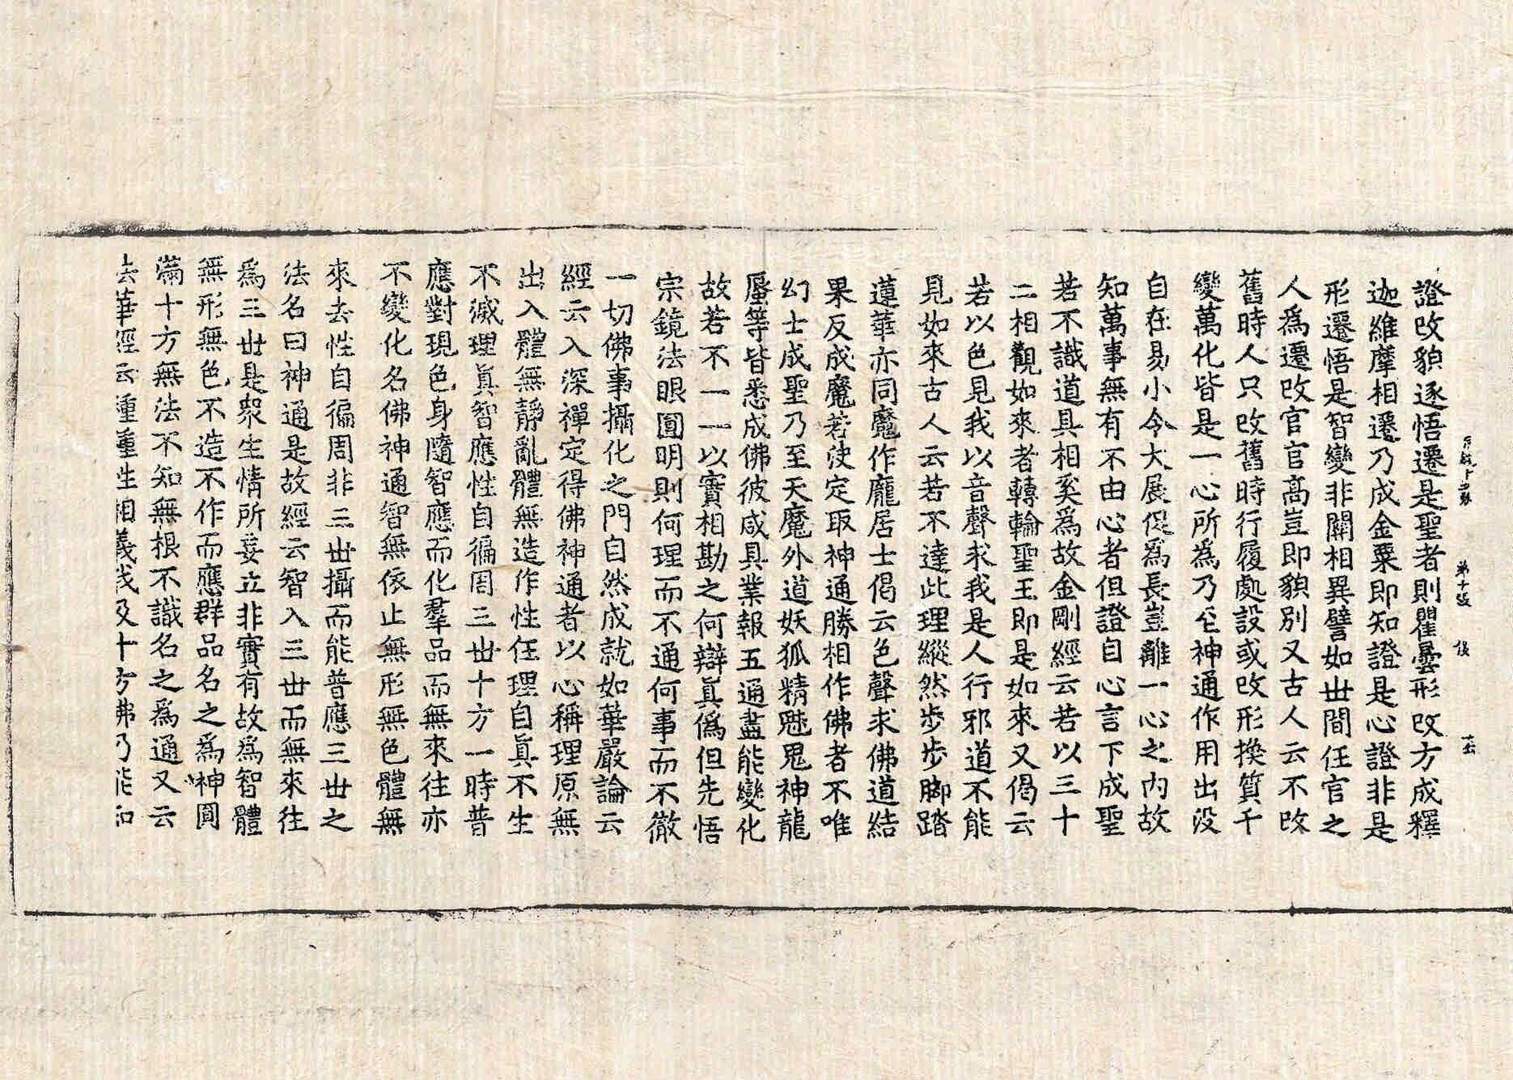 證改貌逐悟遷是聖者則瞿曇形改方成釋
迦維摩相遷乃成金粟即知證是心證非是
形遷悟是智變非關相異譬如丗間任官之
人為遷改官官高豈即貌別又古人云不改
舊時人只改舊時行履處設或改形換質千
變萬化皆是一心所為乃至神通作用出没
自在易小令大展促為長豈離一心之內故
知萬事無有不由心者但證自心言下成聖
若不識道具相奚為故金剛經云若以三十
二相觀如來者轉輪聖王即是如來又偈云
若以色見我以音聲求我是人行邪道不能
見如來古人云若不達此理縱然步步脚踏
蓮華亦同魔作龐居士偈云色聲求佛道結
果反成魔若決定取神通勝相作佛者不唯
幻士成聖乃至天魔外道妖狐精魅鬼神龍
蜃等皆悉成佛彼咸具業報五通盡能變化
故若不一一以實相勘之何辯真偽但先悟
宗鏡法眼圓明則何理而不通何事而不徹
一切佛事攝化之門自然成就如華嚴論云
經云入深禪定得佛神通者以心稱理原無
出入體無靜亂體無造作性任理自真不生
不滅理真智應性自徧周三丗十方一時普
應對現色身隨智應而化羣品而無來往亦
不變化名佛神通智無依止無形無色體無
來去性自徧周非三丗攝而能普應三丗之
法名曰神通是故經云智入三丗而無來往
為三丗是眾生情所妄立非實有故為智體
無形無色不造不作而應群品名之為神圓
滿十方無法不知無根不識名之為通又云
法華經云種種性相義我及十方佛乃能知